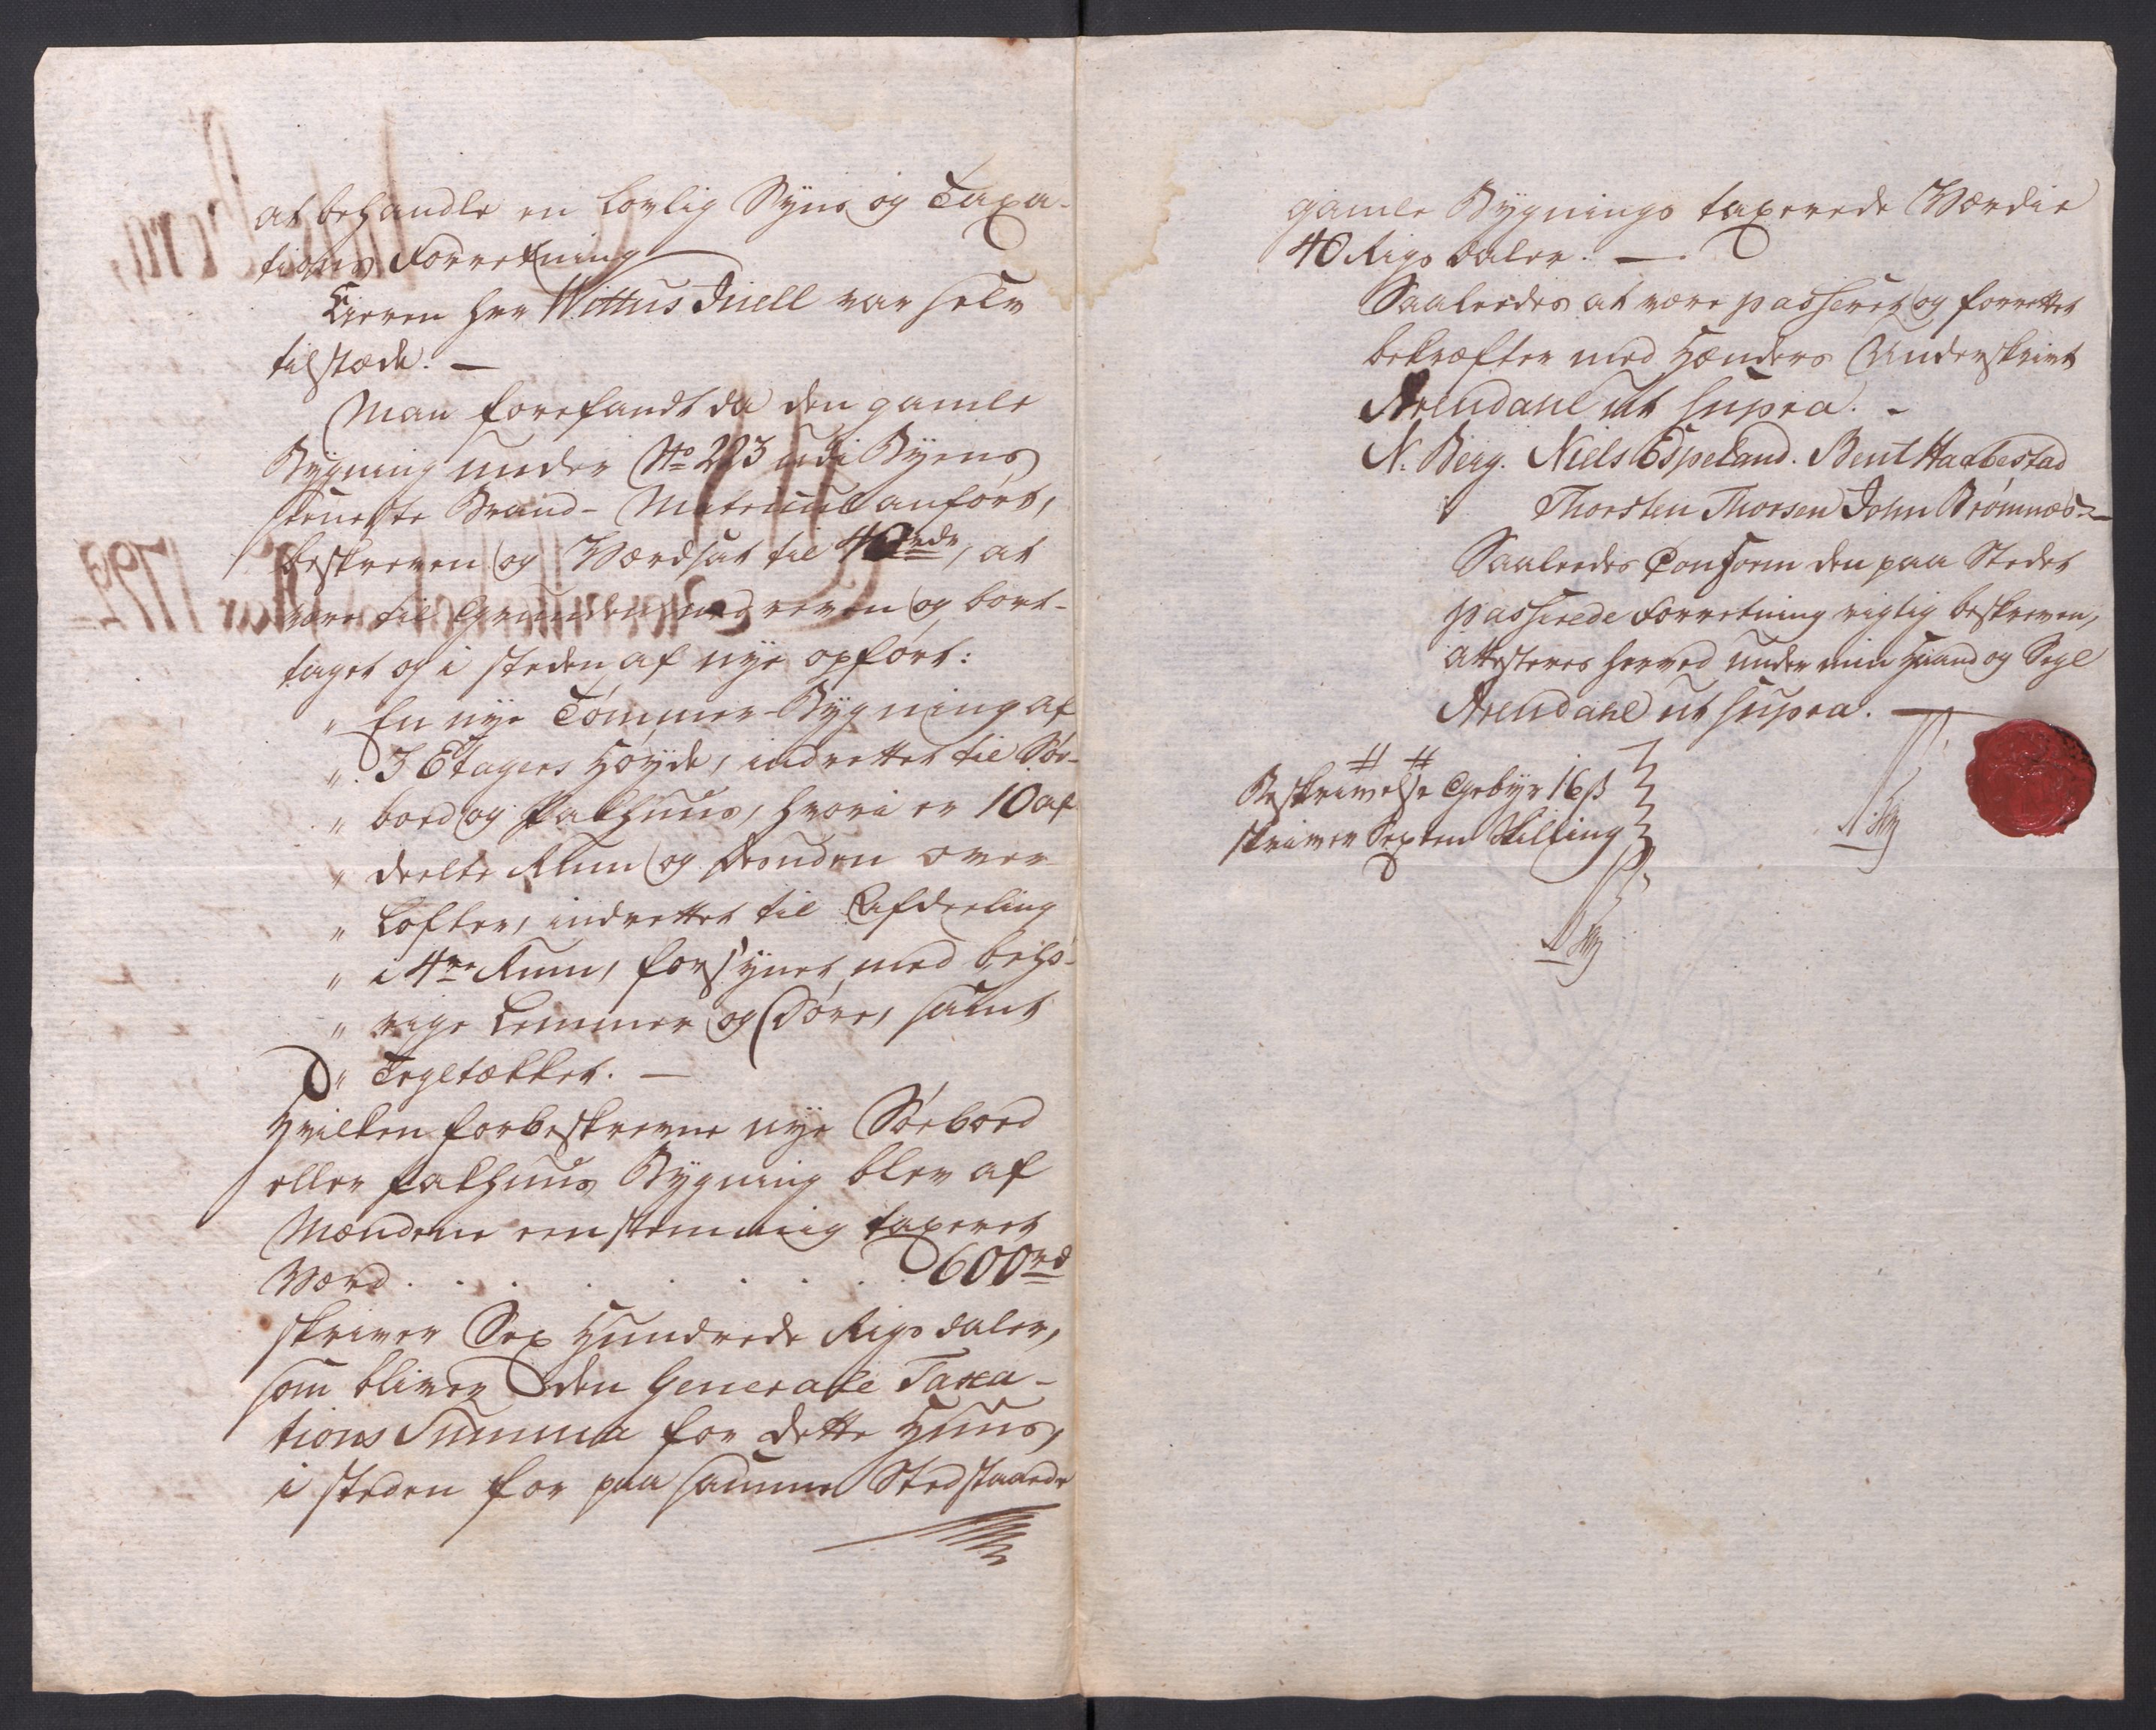 at behandle en Lovlig Syns og Taxa-
tions Forretning
Eieren Herr Wittus Juell var selv
tilstæde. —
Man forefandt da den gamle
Bygning under No 223 udi Byens
seneste Brand-Matricul anført,
beskreven og Værdsat til 40 rdr, at
være til Grunden nedreven og bort-
taget og i steden af nye opført:
" En nye Tømmer-Bygning af
" 3 Etagers Høyde, indrettet til Søe-
" boed og Pakhuus, hvori er 10 af
" deelte Rum og desuden over
" Lofter, indrettet til Afdeeling
" i 4re Rum, forsynet med behø-
" rige Lemmer og Døre, samt
" Tegltækket. —
Hvilken forbeskrevne nye Søeboed
eller Pakhuus Bygning blev af
Mændene eenstemmig taxeret
Værd . . . . . . . . 600 rd
skriver Sex Hundrede Rigsdaler,
som bliver den Generale Taxa-
tions Summa for dette Huus,
i steden for paa samme Sted staaede
gamle Bygnings taxerede Værdie
40 Rigsdaler. —
Saaleedes at være passeret og forrettet
bekræfter med Hænders Underskrivt
Arendahl ut supra. -
N. Berg. Niels Espeland. Bent Haabestad
Thorsten Thorsen John Brømnæs
Saaleedes Conform den paa Stedet
passerede Forretning rigtig beskreven,
attesteres herved under min Haand og Segl
Arendahl ut supra.
Beskrivelse Gebyr 16 β
skriver Sexten Skilling